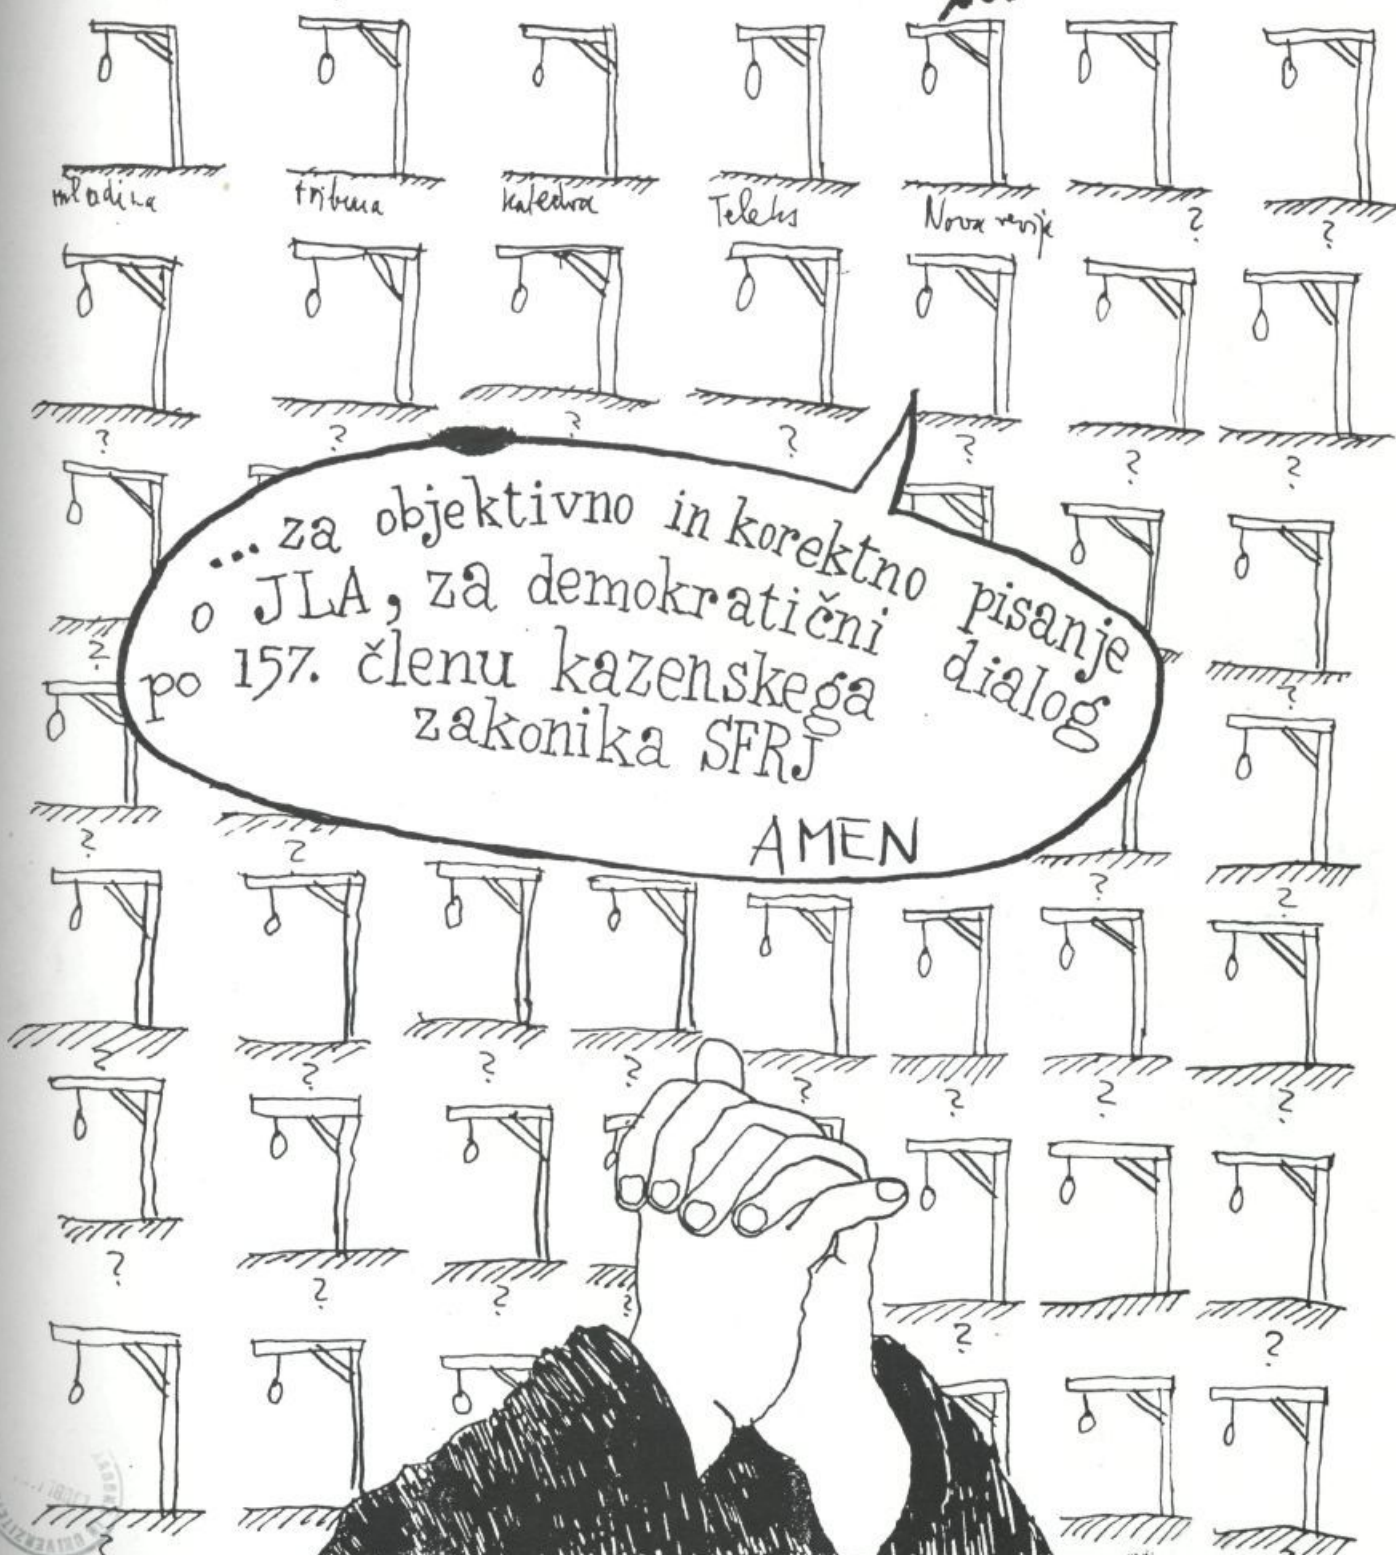 mladina tribuna katedra Teleks Nova revija ? ?
? ? ? ? ? ? ?
... za objektivno in korektno pisanje
o JLA, za demokratični dialog
po 157. členu kazenskega
zakonika SFRJ
AMEN
? ?
? ? ? ?
? ? ? ? ? ? ? ?
? ? ? ? ? ?
?